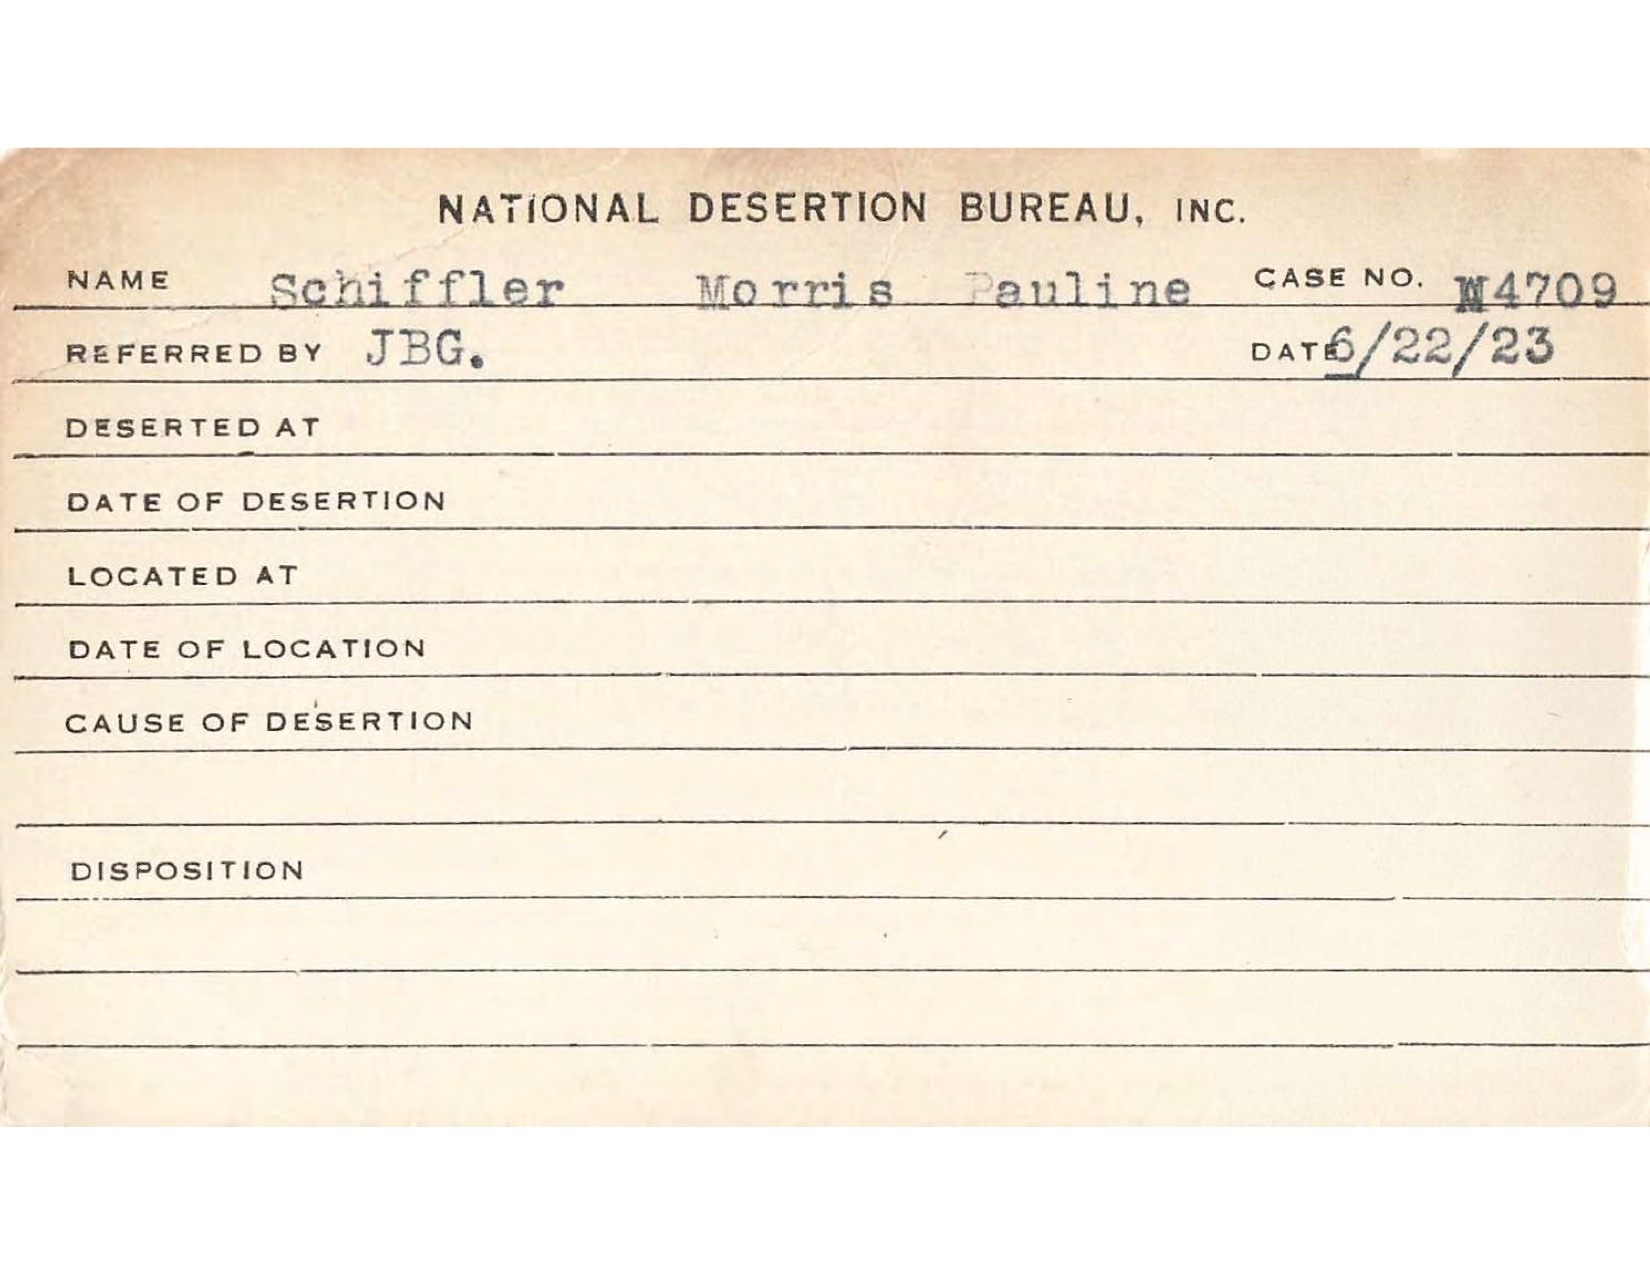 NATIONAL DESERTION BUREAU, INC.
NAME Schiffler Morris Pauline CASE NO. W4709
REFERRED BY JBG. DATE 6/22/23
DESERTED AT
DATE OF DESERTION
LOCATED AT
DATE OF LOCATION
CAUSE OF DESERTION
DISPOSITION